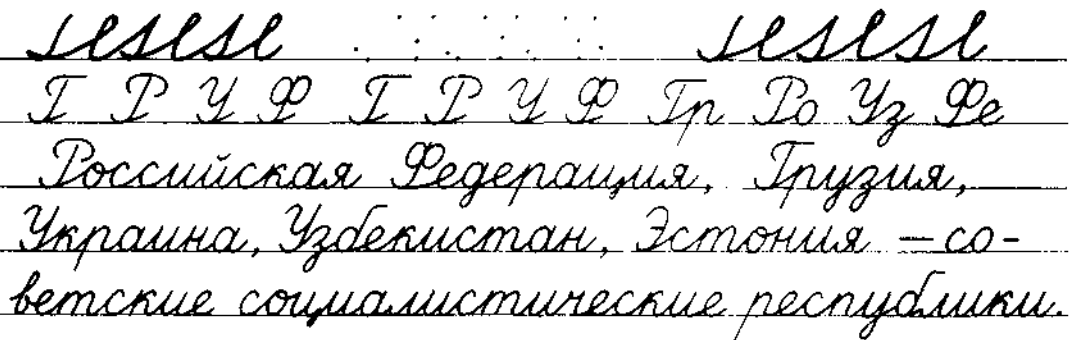 Г Р У Ф Г Р У Ф Гр Ро Уз Фе
Российская Федерация, Грузия,
Украина, Узбекистан, Эстония – со-
ветские социалистические республики.